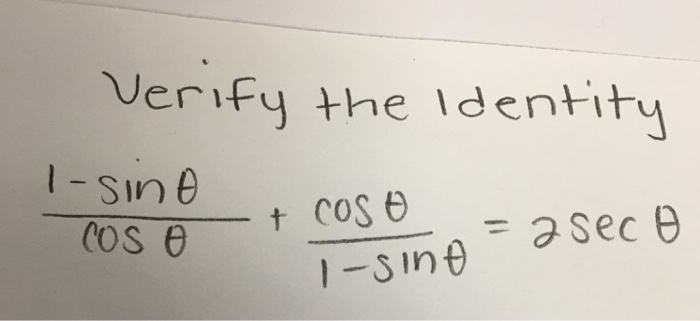 Verify the Identity
(1-sin θ)/(cos θ) + (cos θ)/(1-sin θ) = 2 sec θ